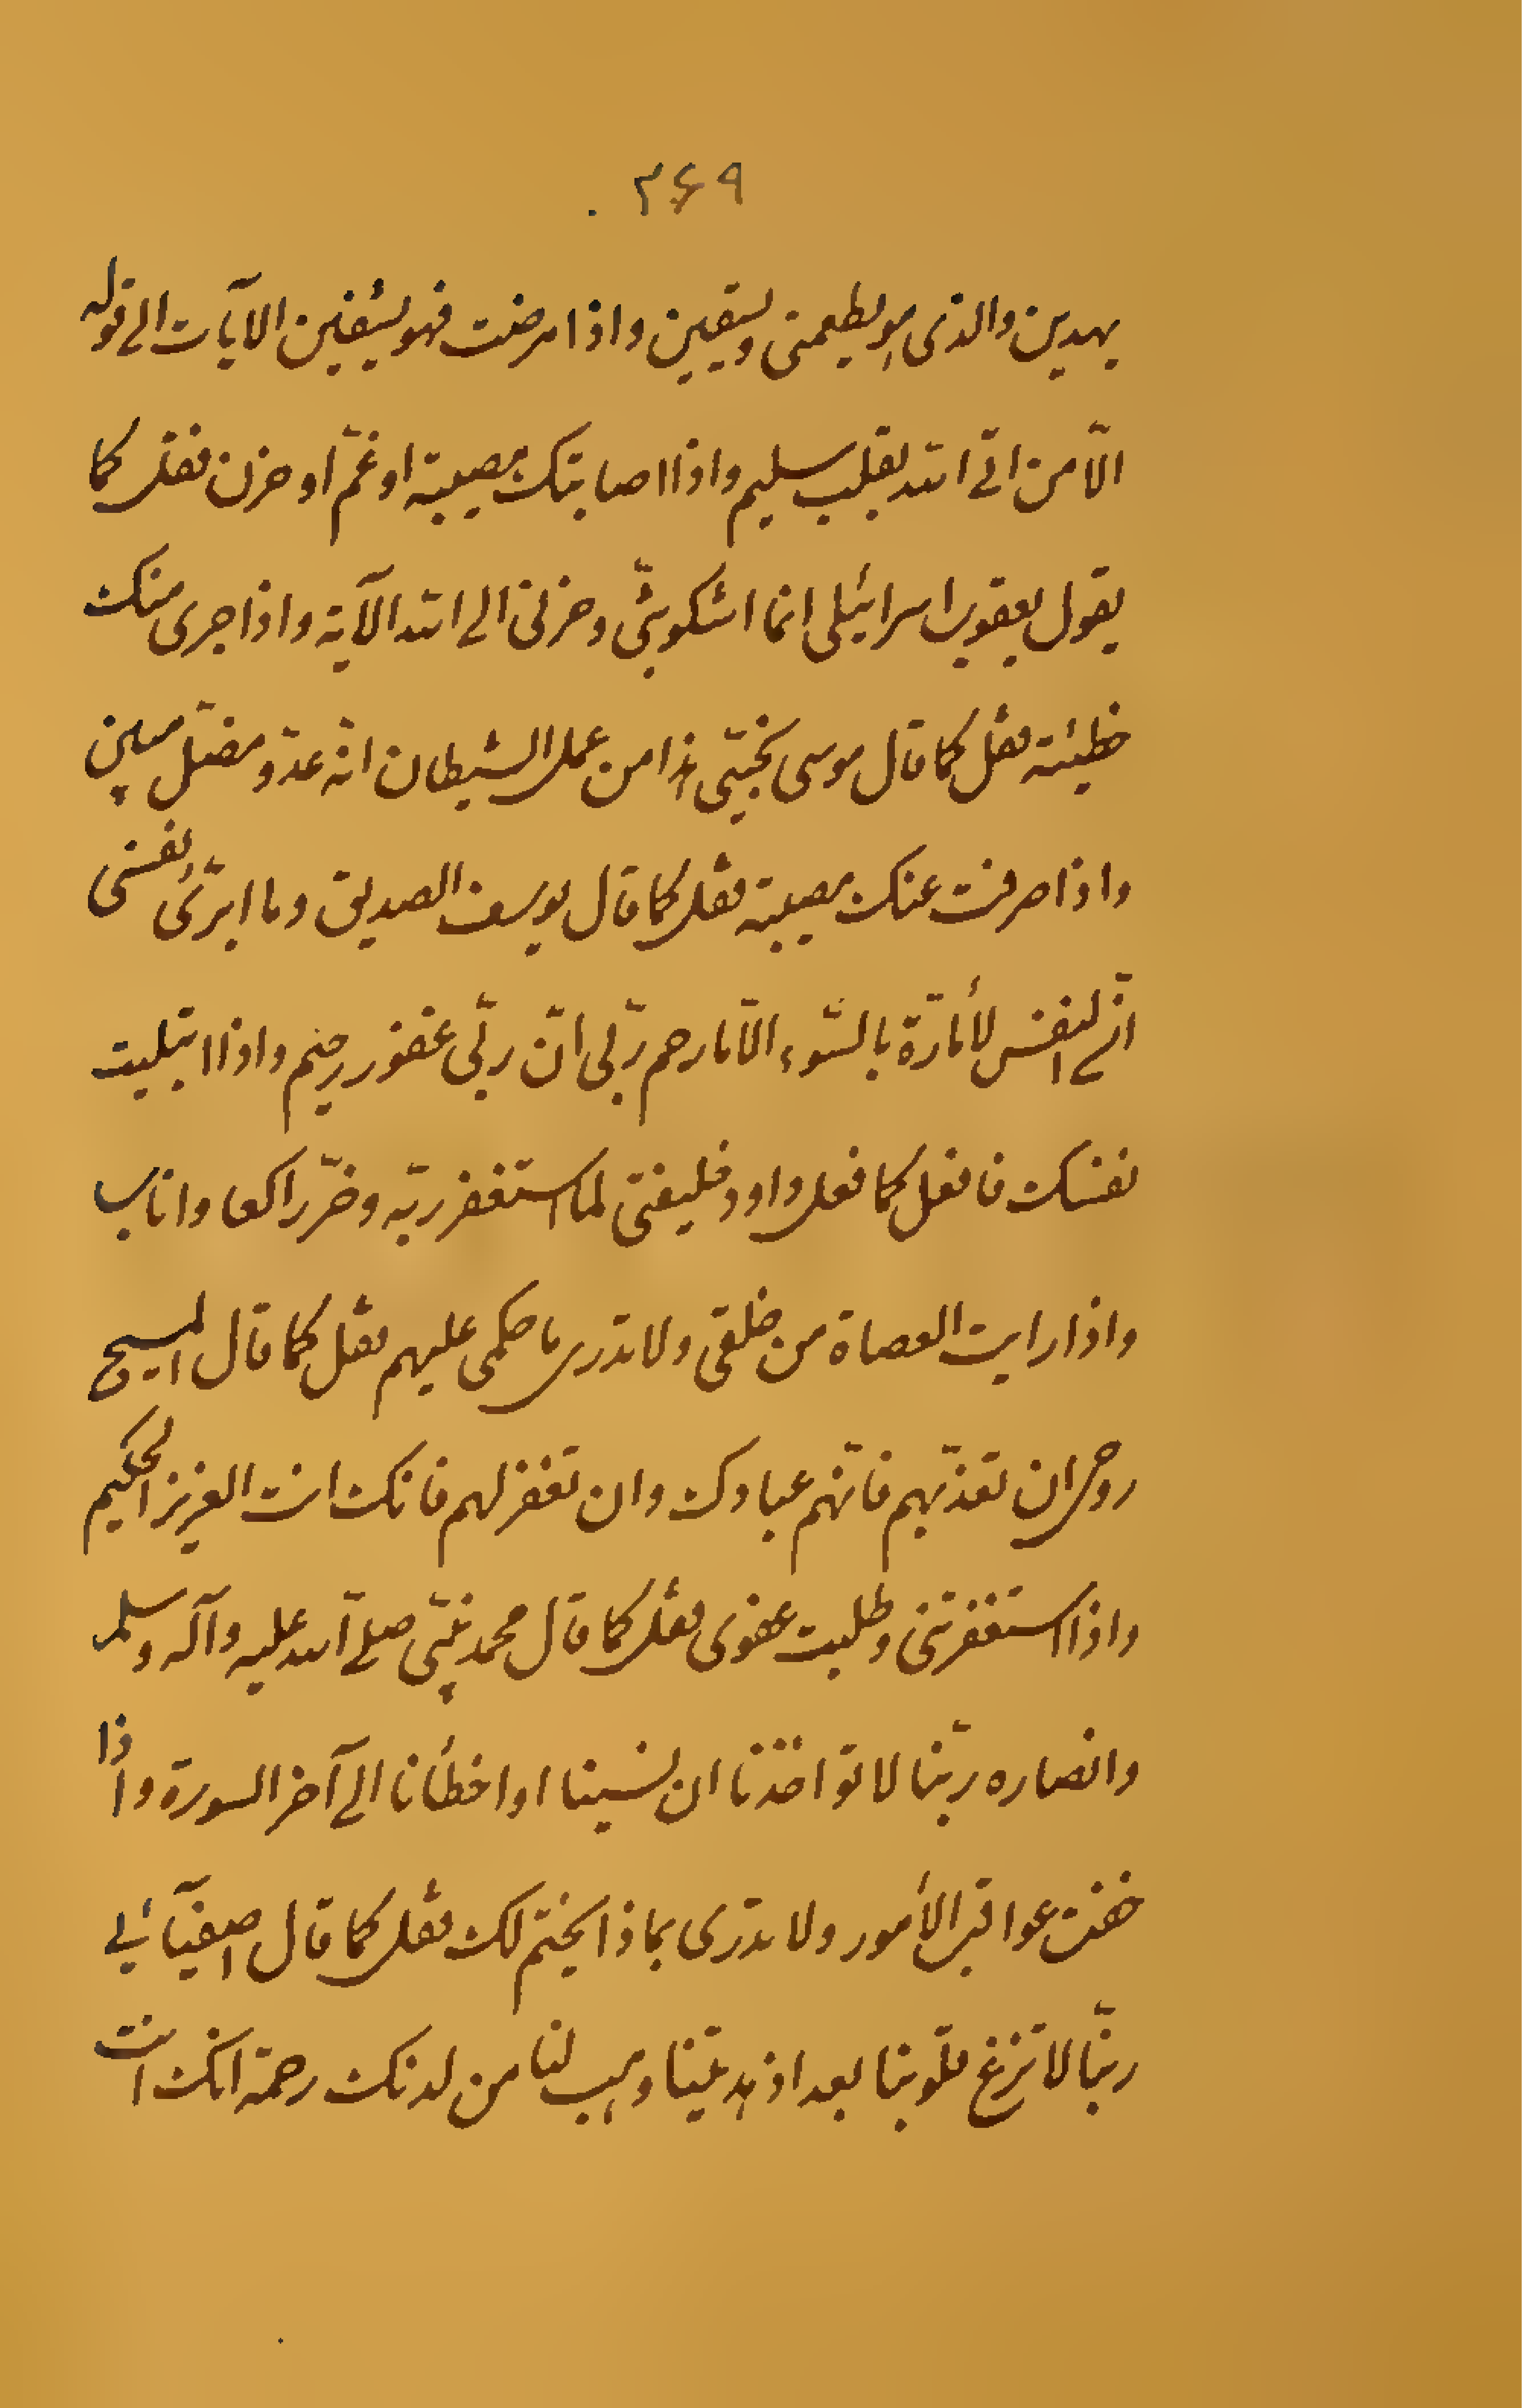 ۳۶۹
يهدين والذى هو يطعمنى ويسقين واذا مرضت فهو يشفين الآيات الى قوله
الّا من اتى الله بقلب سليم واذا اصابتك مصيبة او غمّ او حزن فقل كما
يقول يعقوب اسرائيلى انما اشكو بثّى وحزنى الى الله الآية واذا جرى منك
خطيئة فقل كما قال موسى نجيّى هذا من عمل الشيطان انّه عدوّ مضلّ مبين
واذا صرفت عنك مصيبة فقل كما قال يوسف الصديق وما ابرّئ نفسى
انّ النفس لأمّارة بالسّوء الّا ما رحم ربّى انّ ربّى غفور رحيم واذا ابتليت
نفسك فافعل كما فعل داود خليفتى لما استغفر ربّه وخرّ راكعا واناب
واذا رايت العصاة من خلقى ولا تدرى ما حكمى عليهم فقل كما قال المسيح
روحى ان تعذّبهم فانّهم عبادك وان تغفر لهم فانك انت العزيز الحكيم
واذا استغفرتنى وطلبت عفوى فقل كما قال محمد نبيّى صلى الله عليه وآله وسلم
وانصاره ربّنا لا تواخذنا ان نسينا او اخطأنا الى آخر السورة واذا
خفت عواقب الأمور ولا تدرى بما ذا يختم لك فقل كما قال اصفيآئى
ربّنا لا تزغ قلوبنا بعد اذ هديتنا وهب لنا من لدنك رحمة انك انت